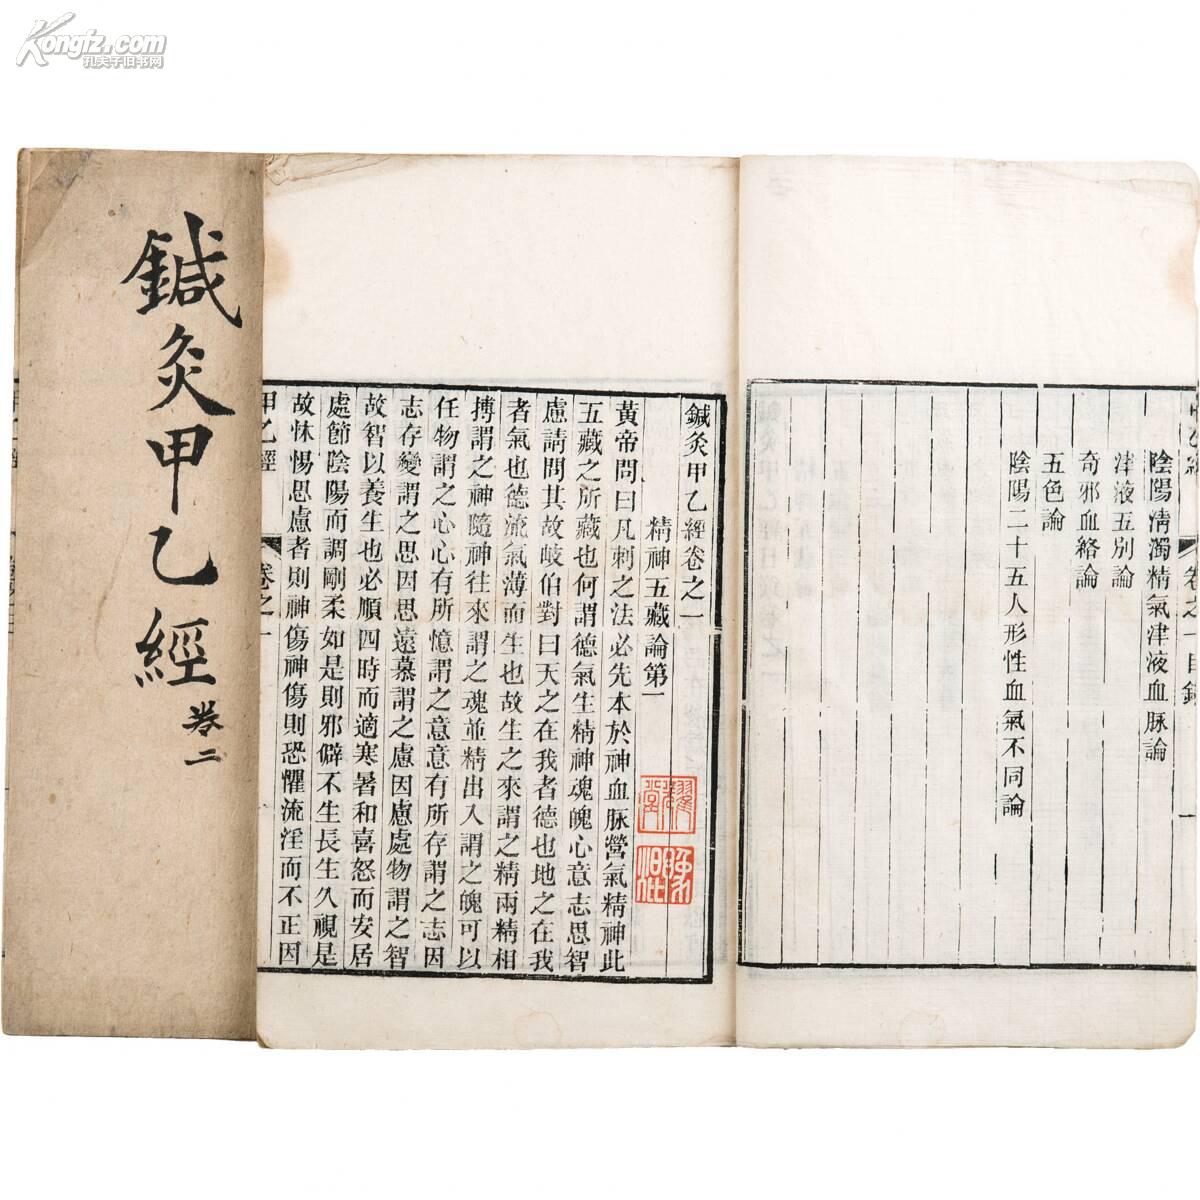 Kongfz.com
孔夫子旧书网
鍼灸甲乙經
卷二
陰陽淸濁精氣津液血脉論
津液五別論
奇邪血絡論
五色論
陰陽二十五人形性血氣不同論
鍼灸甲乙經卷之一
精神五藏論第一
黃帝問曰凡刺之法必先本於神血脉營氣精神此
五藏之所藏也何謂德氣生精神魂魄心意志思智
慮請問其故岐伯對曰天之在我者德也地之在我
者氣也德流氣薄而生也故生之來謂之精兩精相
搏謂之神隨神往來謂之魂並精出入謂之魄可以
任物謂之心心有所憶謂之意意有所存謂之志因
志存變謂之思因思遠慕謂之慮因慮處物謂之智
故智以養生也必順四時而適寒暑和喜怒而安居
處節陰陽而調剛柔如是則邪僻不生長生久視是
故怵惕思慮者則神傷神傷則恐懼流淫而不正因
甲乙經
卷之一